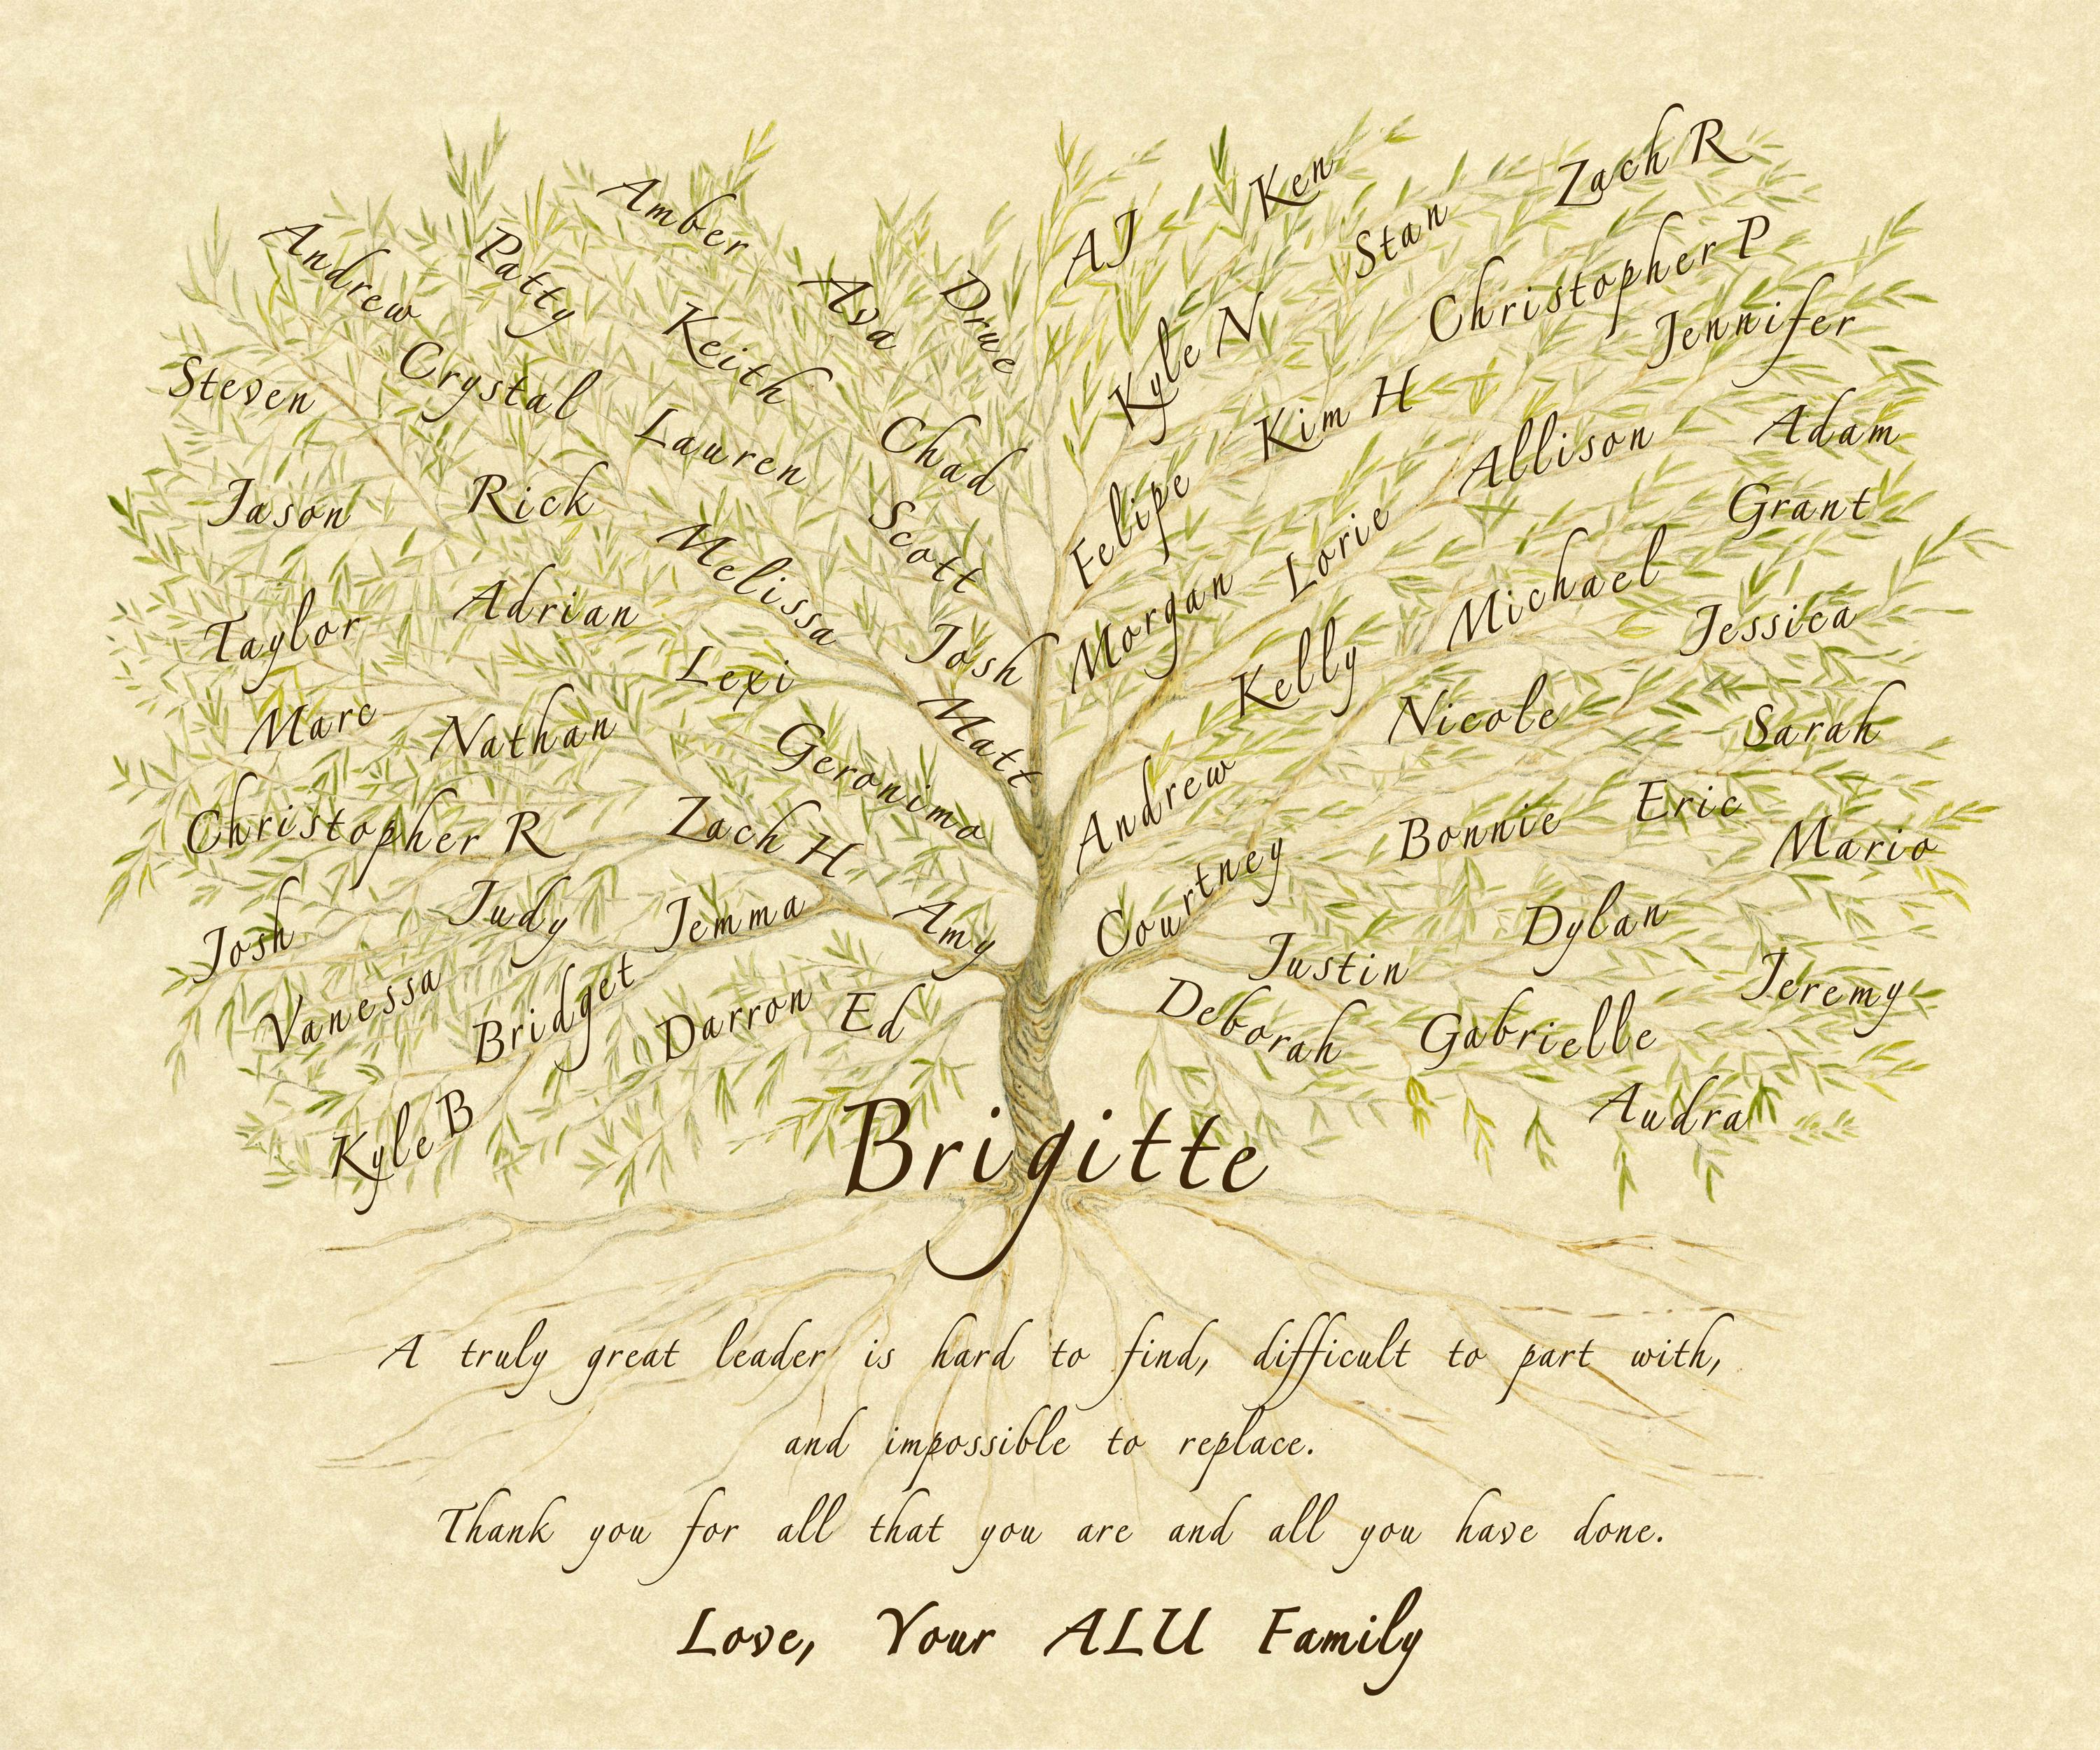 Zach R
Ken
Amber
AJ
Stan
Andrew
Patty
Ava
Drue
Christopher P
Kyle N
Jennifer
Keith
Steven
Crystal
Kim H
Lauren
Chad
Allison
Adam
Jason
Rick
Felipe
Grant
Scott
Lorie
Melissa
Michael
Taylor
Adrian
Morgan
Jessica
Josh
Lexi
Kelly
Marc
Nathan
Matt
Nicole
Sarah
Geronimo
Andrew
Christopher R
Zach H
Bonnie
Eric
Mario
Josh
Judy
Jemma
Amy
Courtney
Dylan
Justin
Vanessa
Bridget
Darron
Ed
Deborah
Gabrielle
Jeremy
Kyle B
Audra
Brigitte
A truly great leader is hard to find, difficult to part with,
and impossible to replace.
Thank you for all that you are and all you have done.
Love, Your ALU Family